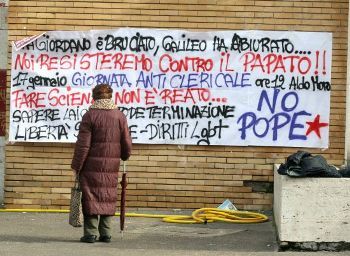 GIORDANO È BRUCIATO, GALILEO HA ABIURATO....
NOI RESISTEREMO CONTRO IL PAPATO!!
17 gennaio GIORNATA ANTICLERICALE ore 12 Aldo Moro
FARE SCIENZA NON È REATO...
SAPERE DETERMINAZIONE
LIBERTÀ E-DIRITTI Lgbt
NO
POPE★